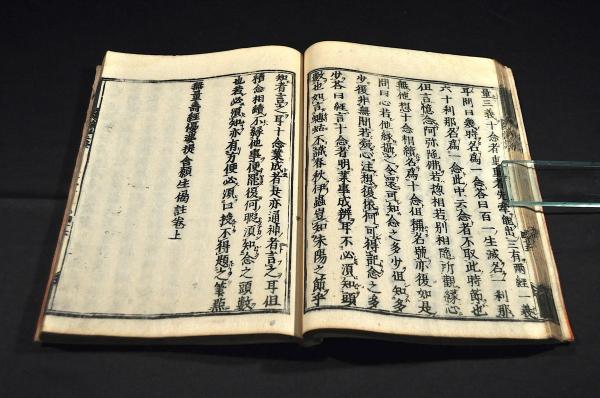 量三義十念者重者先牽能出三有兩經一義
耳問曰幾時名爲一念答曰百一生滅名一刹那
六十刹那名爲一念此中云念者不取此時節也
但言憶念阿彌陀佛若總相若別相隨所觀緣心
無他想十念相續名爲十念但稱名號亦復如是
問曰心若他緣攝之令還可知念之多少但知多
少復非無間若凝心注想復依何可得記念之多
少答曰經言十念者明業事成辨耳不必須知頭
數也如言蟪蛄不識春秋伊蟲豈知朱陽之節乎
知者言之耳十念業成者是亦通神者言之耳但
積念相續不緣他事便罷復何暇須知念之頭數
也若必須知亦有方便必須口授不得題之筆點
無量壽經優婆提舍願生偈註卷上